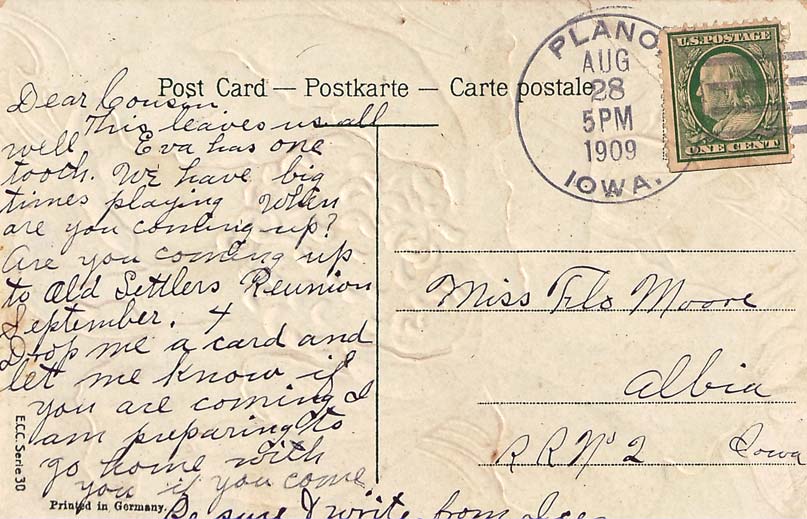 Post Card — Postkarte — Carte postale
PLANO
AUG
28
5PM
1909
IOWA.
U.S. POSTAGE
ONE CENT
Dear Cousen
This leaves us all
well Eva has one
tooth. We have big
times playing When
are you coming up?
Are you coming up
to Old Settlers Reunion
September. 4
Drop me a card and
let me know if
you are coming I
am preparing to
go home with
you if you come
Be sure & write from
Miss Flo Moore
Albia
R R No 2 Iowa
E.C.C. Serie 30
Printed in Germany.